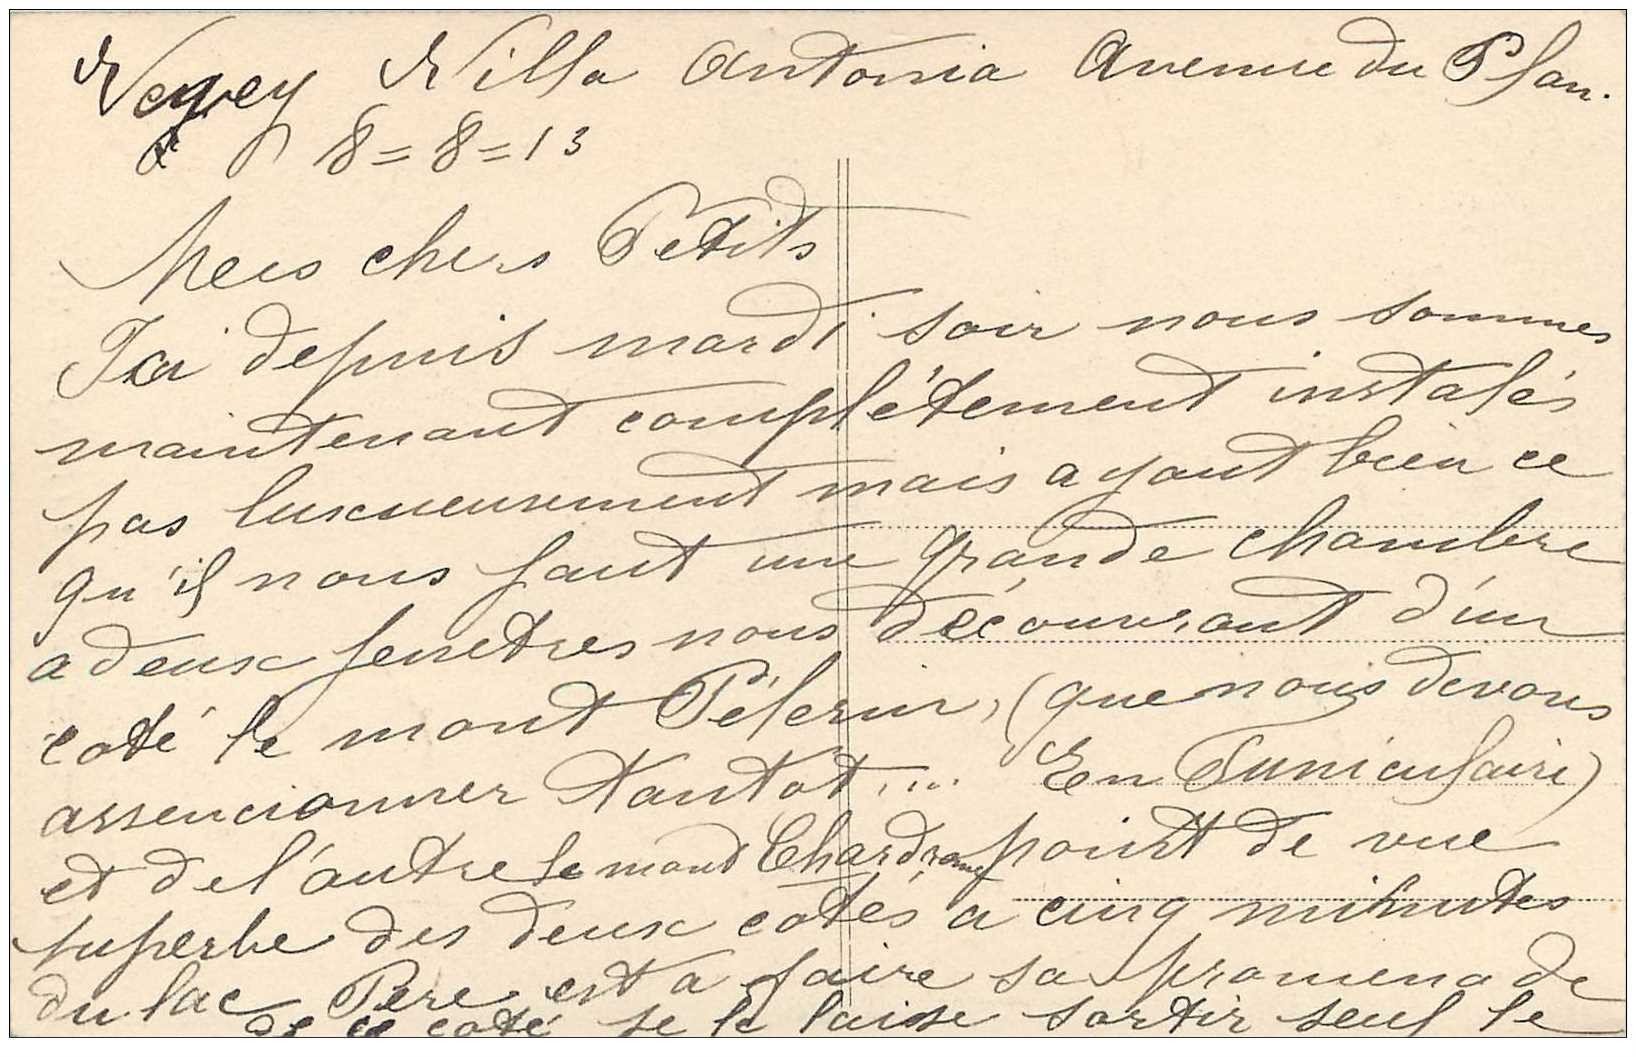 Vevey Villa Antonia Avenue du Plan.
8=8=13
Mes chers Petits
Ici depuis mardi soir nous sommes
maintenant complétement instalés
pas luxueusement mais ayant bien ce
qu'il nous faut une grande chambre
a deux fenetres nous découvrant d'un
coté le mont Pélerin, (que nous devons
assencionner tantot.... En Funiculaire)
et de l'autre le mont point de vue
superbe des deux cotés a cinq minutes
du lac Pere est a faire sa promenade
de ce coté je le laisse sortir seul le